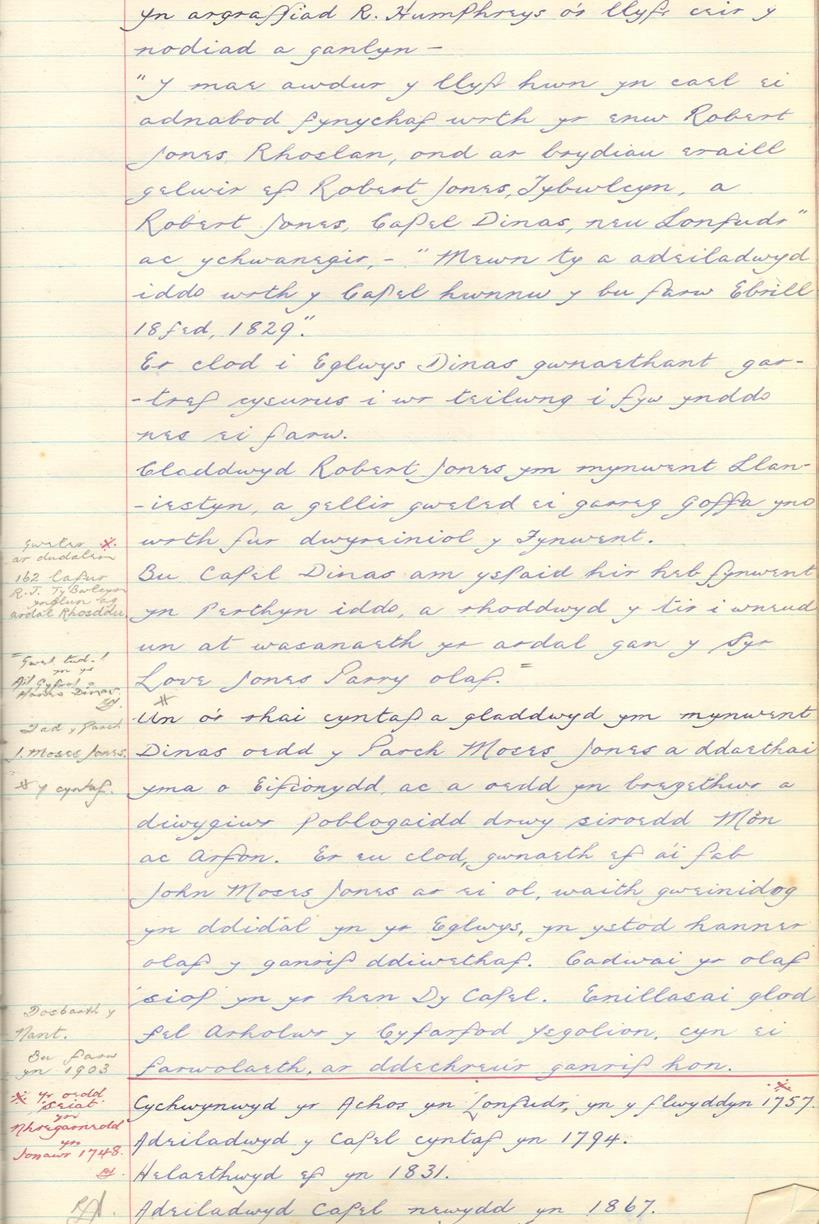 yn argraffiad R. Humphreys o'r llyfr ceir y
nodiad a ganlyn -
"Y mae awdur y llyfr hwn yn cael ei
adnabod fynychaf wrth yr enw Robert
Jones, Rhoslan, ond ar brydiau eraill
gelwir ef Robert Jones, Tybwlcyn, a
Robert Jones, Capel Dinas, neu Lonfudr"
ac ychwanegir, - "Mewn ty a adeiladwyd
iddo wrth y Capel hwnnw y bu farw Ebrill
18fed, 1829."
Er clod i Eglwys Dinas gwnaethant gar-
-tref cysurus i wr teilwng i fyw ynddo
nes ei farw.
Claddwyd Robert Jones ym mynwent Llan-
-iestyn, a gellir gweled ei garreg goffa yno
wrth fur dwyreiniol y Fynwent.
Bu Capel Dinas am yspaid hir heb fynwent
yn perthyn iddo, a rhoddwyd y tir i wneud
un at wasanaeth yr ardal gan y Syr
Love Jones Parry olaf. =
Un o'r rhai cyntaf a gladdwyd ym mynwent
Dinas oedd y Parch Moses Jones a ddaethai
yma o Eifionydd, ac a oedd yn bregethwr a
diwygiwr poblogaidd drwy siroedd Môn
ac Arfon. Er eu clod, gwnaeth ef a'i fab
John Moses Jones ar ei ol, waith gweinidog
yn ddidâl yn yr Eglwys, yn ystod hanner
olaf y ganrif ddiwethaf. Cadwai yr olaf
siop yn yr hen Dy Capel. Enillasai glod
fel Arholwr y Cyfarfod Ysgolion, cyn ei
farwolaeth, ar ddechreu'r ganrif hon.
Cychwynwyd yr Achos yn Lonfudr, yn y flwyddyn 1757.
Adeiladwyd y Capel cyntaf yn 1794.
Helaethwyd ef yn 1831.
Adeiladwyd Capel newydd yn 1867.
Gweler
ar dudalen
162 Lafur
R.J. Ty Bwlcyn
ynglun ag
ardal Rhosddu
"Gwel tud. 1
yn yr
Hanes Dinas.
Tad y Parch
J. Moses Jones.
# y cyntaf.
Dosbarth y
Nant.
Bu farw
yn 1903
yr oedd
Seiat
yn
Nhregarnedd
yn
Ionawr 1748.